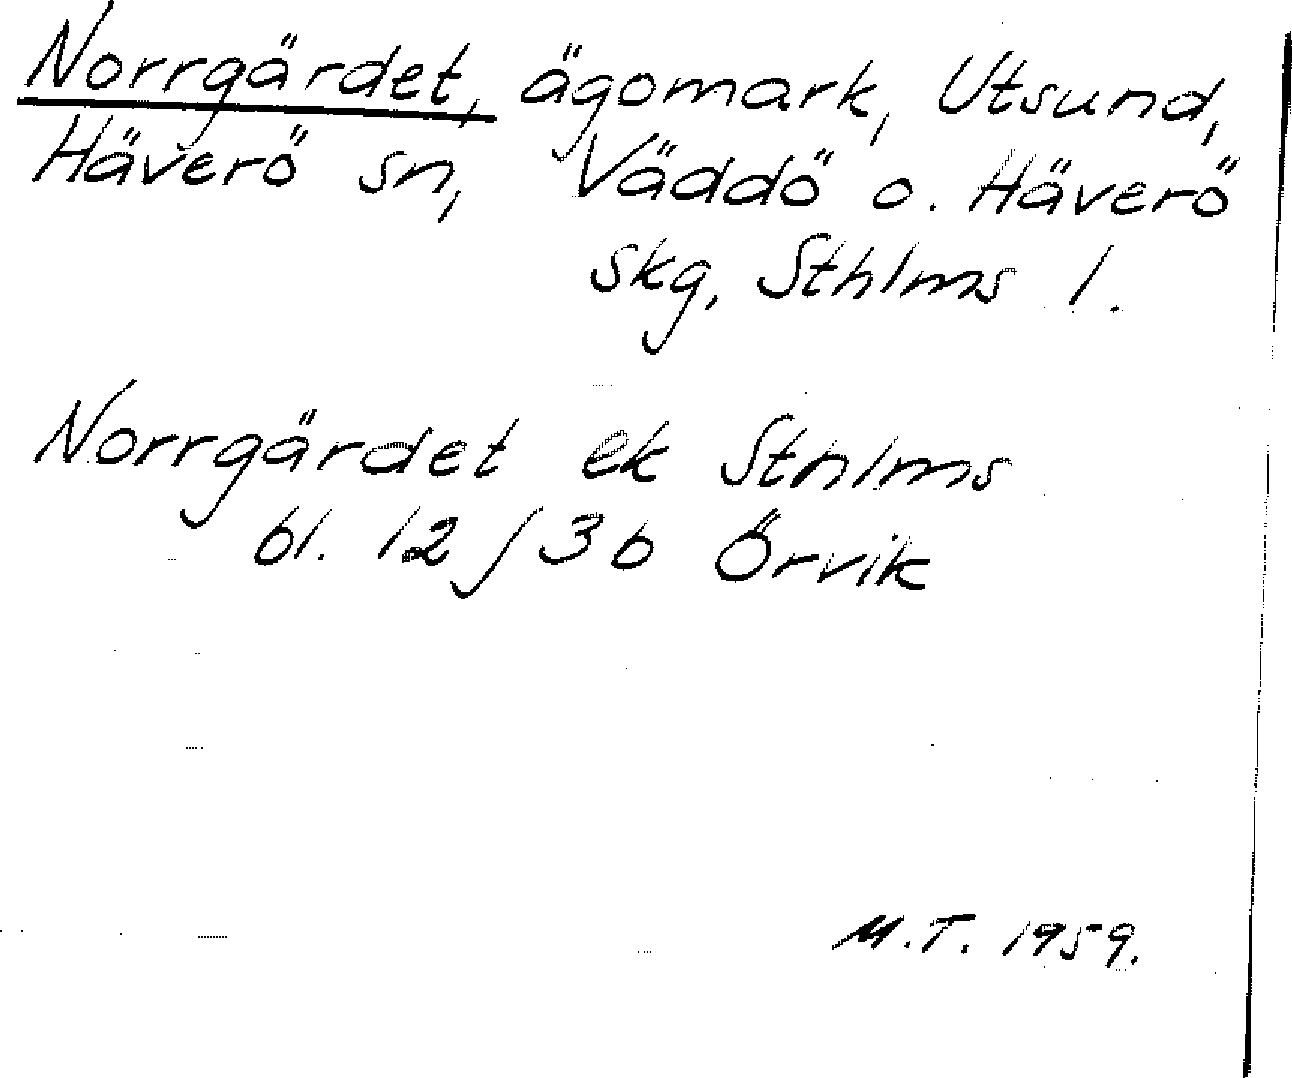 Norrgärdet, ägomark, Utsund,
Häverö sn, Väddö o. Häverö
skg, Sthlms l.
Norrgärdet ek Sthlms
bl. 12 / 3b Örvik
M.T. 1959.